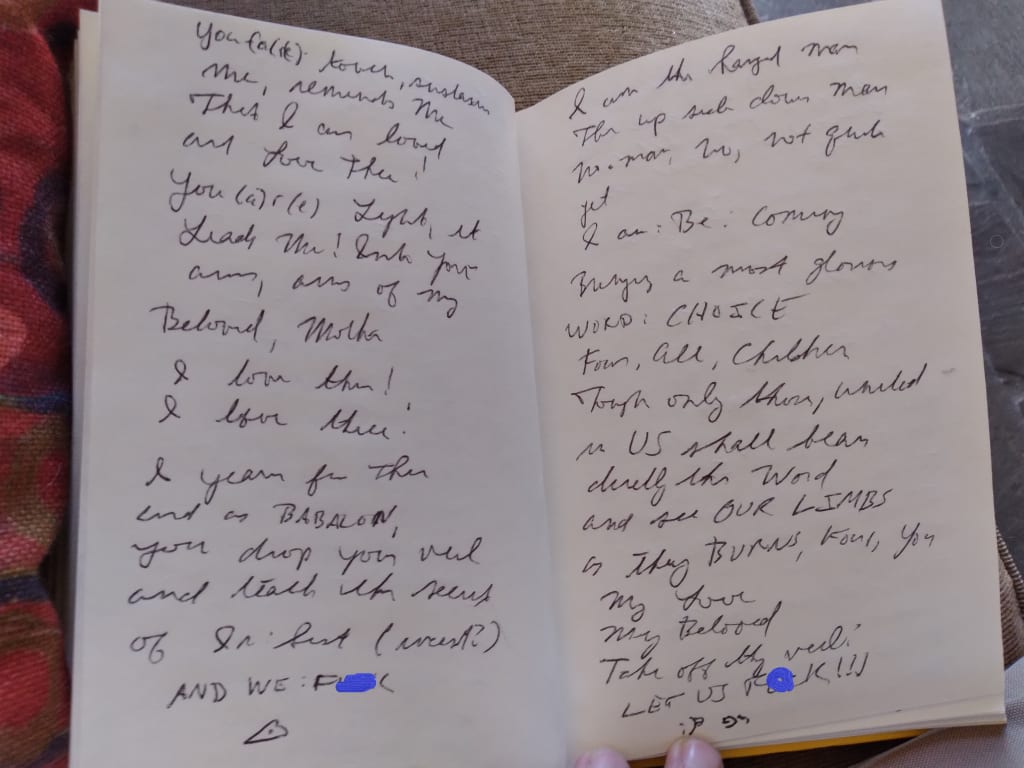 You (a(r)e) touch, sustain
me, reminds me
That I am loved
and Love Thee!
You (a)r(e) Light, it
Leads Me! Into your
arms, arms of my
Beloved, Mother
I love thee!
I love thee!
I yearn for Thee
and as BABALON,
you drop your veil
and teach the secret
of In·Sest (incest?)
AND WE: F
I am the hanged man
The up side down man
no, not quite
yet
I am: Be: Coming
Bringing a most glorious
WORD: CHOICE
Four, All, Children
Though only thou, united
in US shall bear
the Word
and see OUR LIMBS
as they BURNS, Four, You
My Love
My Beloved
Take off thy veil!
LET US F K!!!